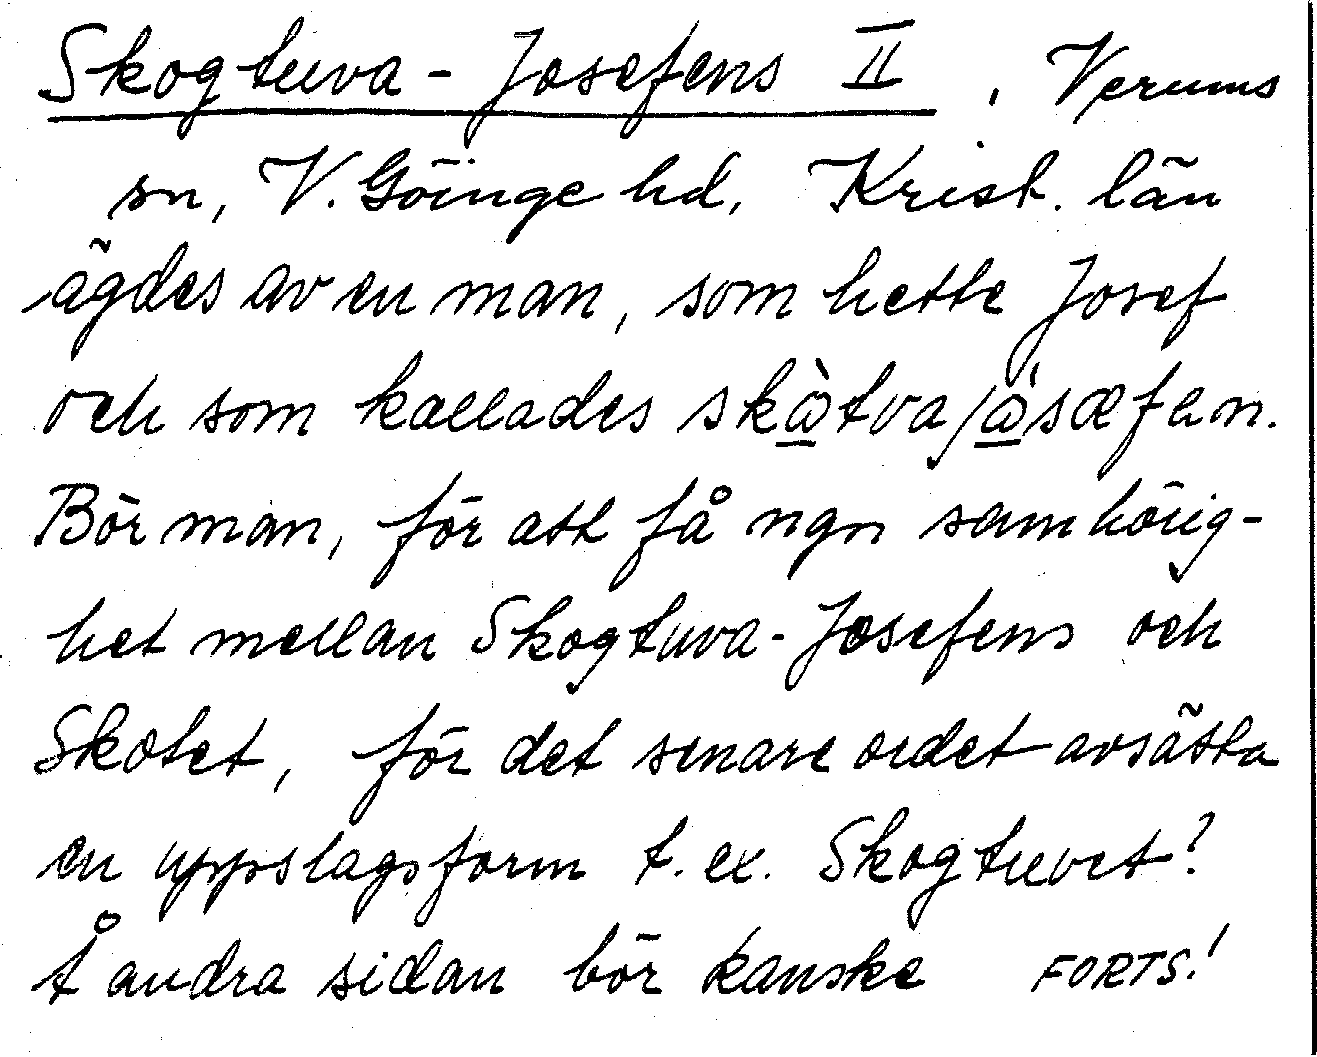 Skogtuva-Josefens II, Verums
sn, V. Göinge hd, Krist. län
ägdes av en man, som hette Josef
och som kallades
Bör man, för att få ngn samhörig-
het mellan Skogtuva-Josefens och
Skotet, för det senare ordet avsätta
en uppslagsform t. ex. Skogtuvet?
Å andra sidan bör kanske FORTS.!